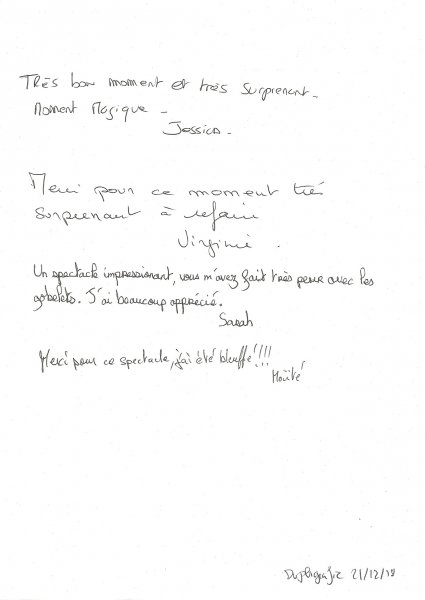 Très bon moment et très surprenant.
Moment Magique.
Jessica.
Merci pour ce moment très
surprenant à refaire
Virginie.
Un spectacle impressionnant, vous m'avez fait très peur avec les
gobelets. J'ai beaucoup apprécié.
Sarah
Merci pour ce spectacle, j'ai été bluffé !!!!
21/12/18